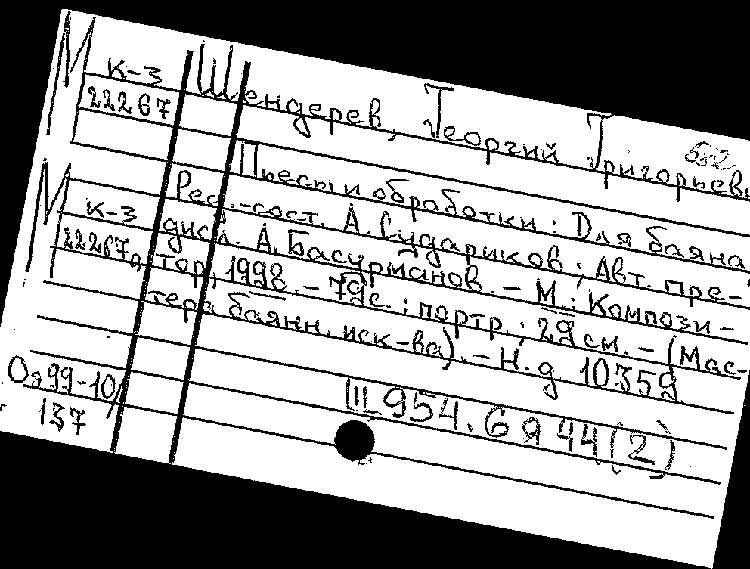 М К-3
22267
Шендерев, Георгий Григорьеви
582
Пьесы и обработки: Для баяна /
Ред.-сост. А. Судариков; Авт. пре-
дисл. А. Басурманов. – М.: Компози-
тор, 1998. – 79с.: портр.; 29 см. – (Мас-
тера баянн. иск-ва). – Н.д. 10359
М К-3
22267а
Оя99-10/
137
Щ954.6я44(2)